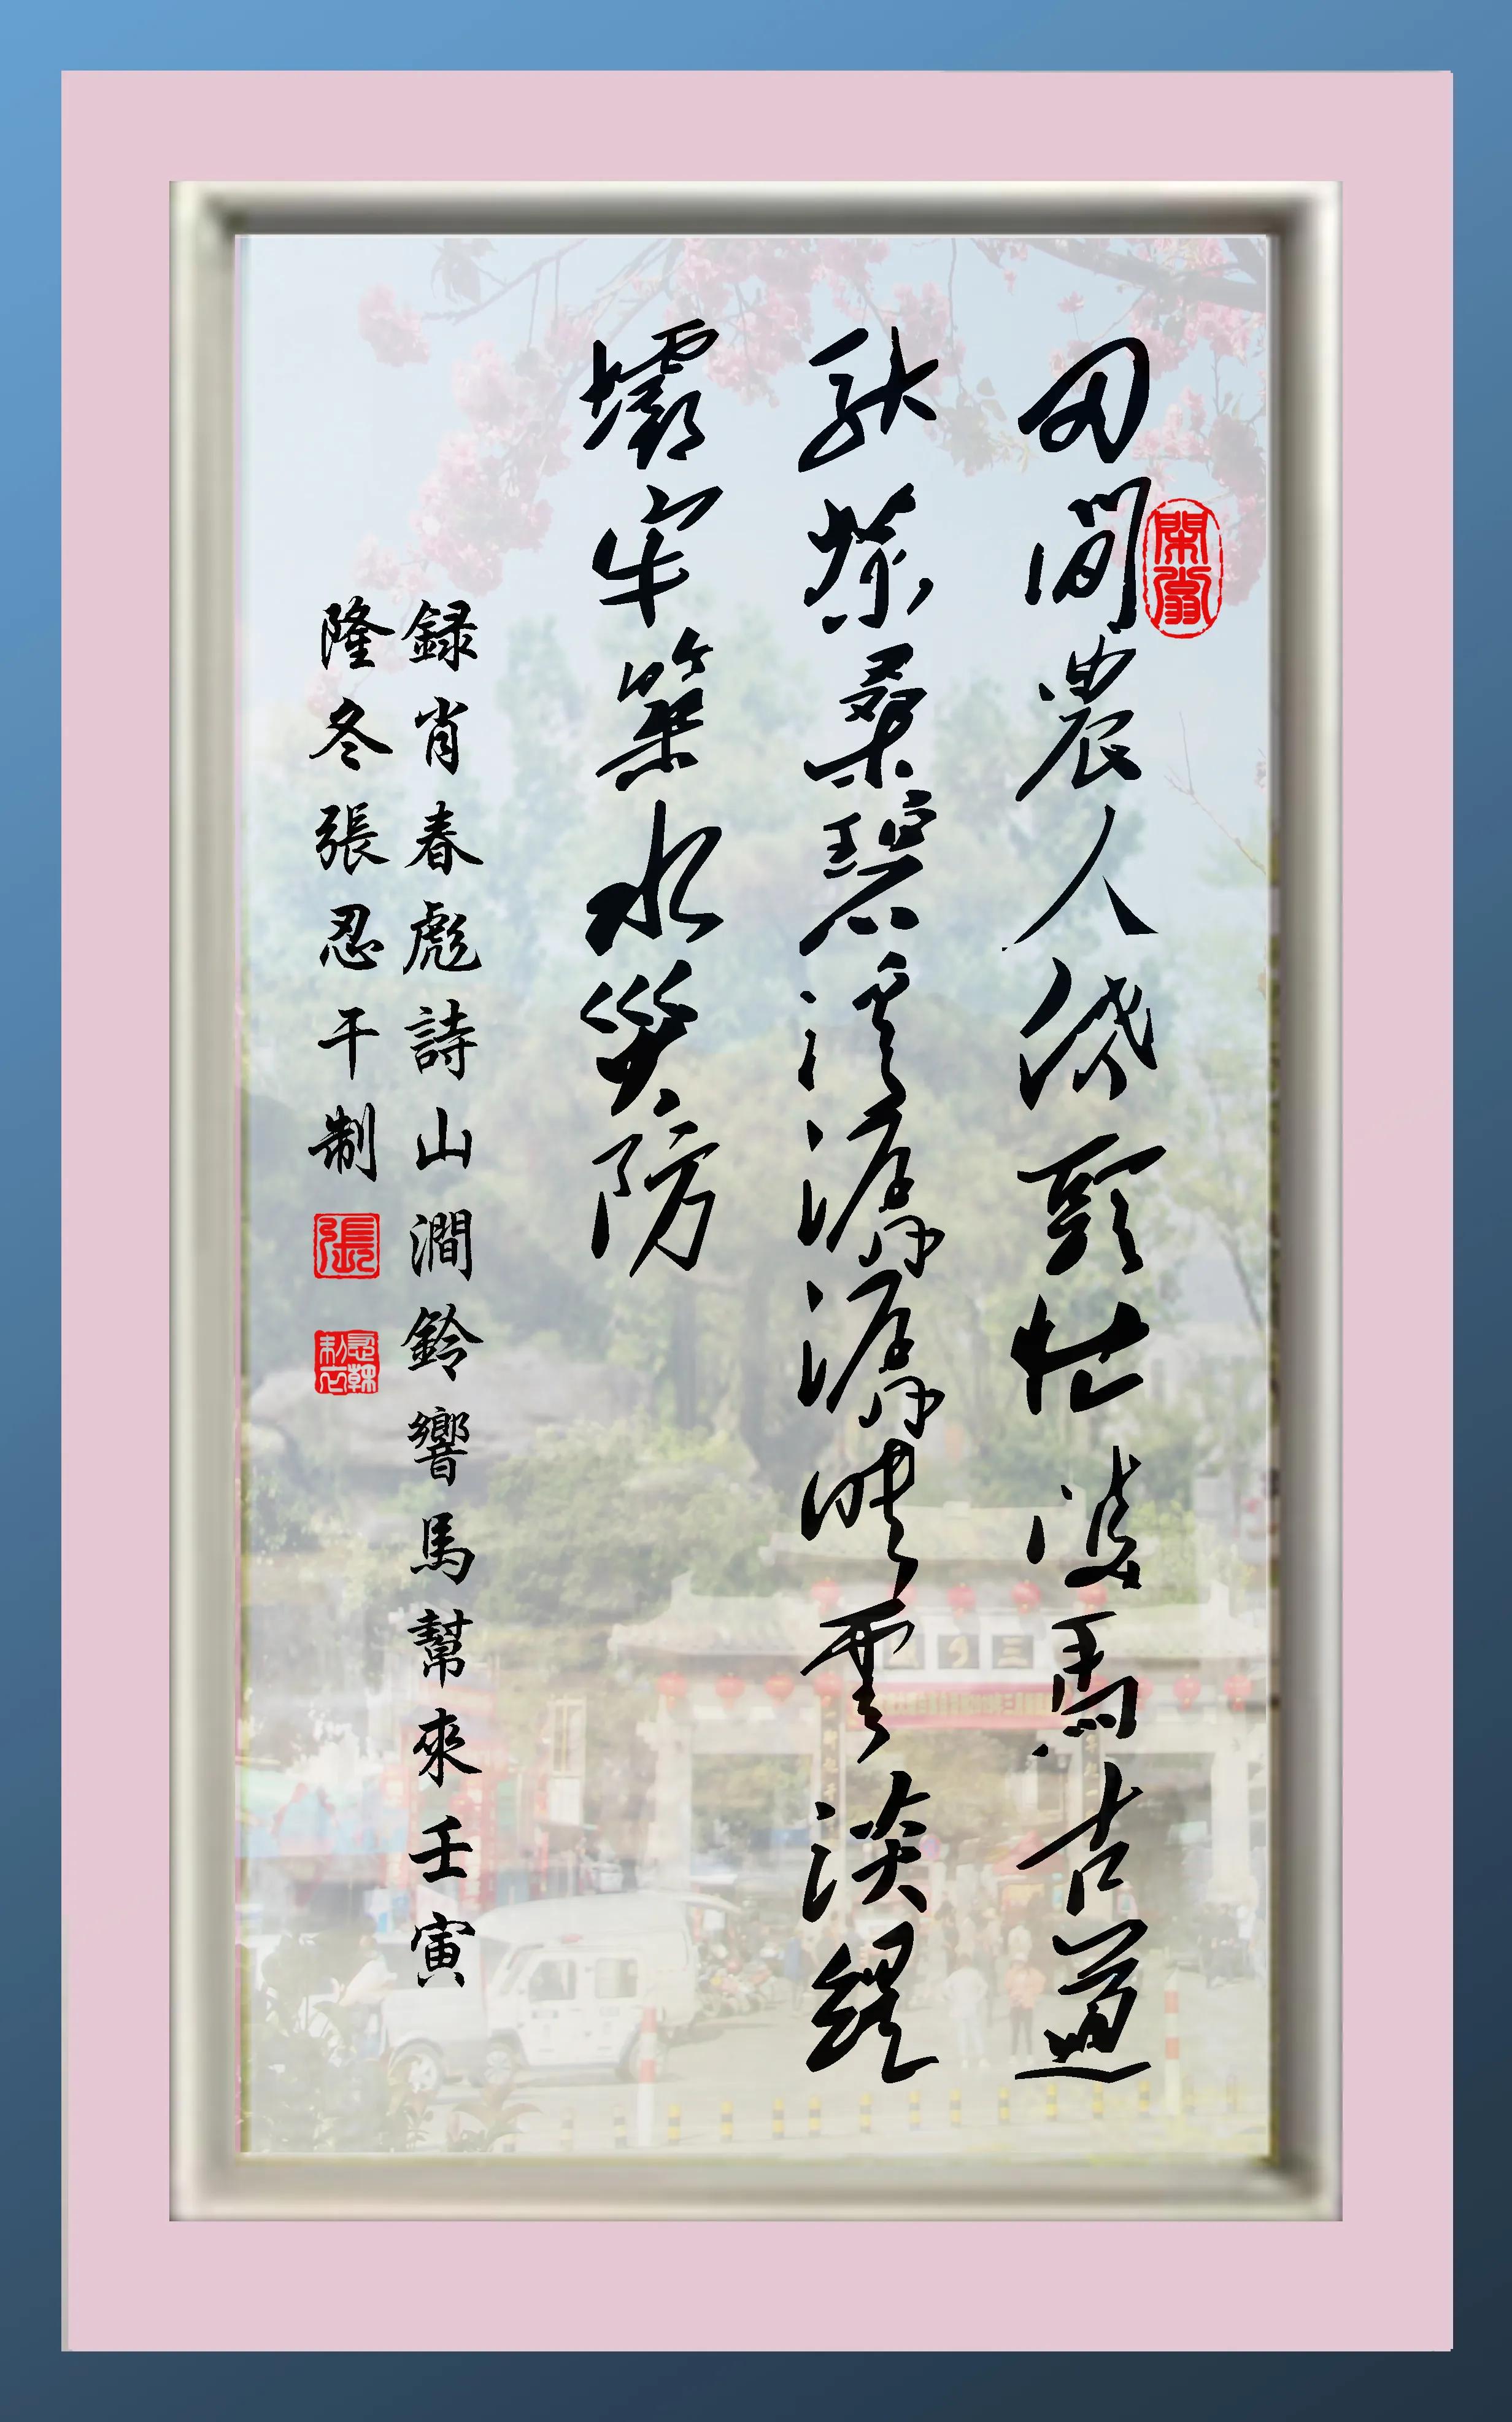 田間農人頭忙馬古道
馱茶桑碧溪潺潺映雲淡緹
壩牢築水災防
録肖春彪詩山澗鈴響馬幫來壬寅
隆冬張忍干制
張